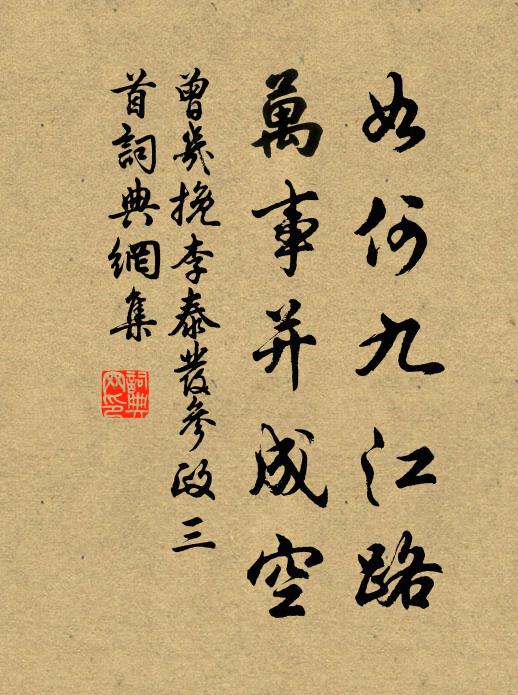 如何九江路
萬事并成空
曾幾挽李泰發參政三
首詞典網集
詞典網印